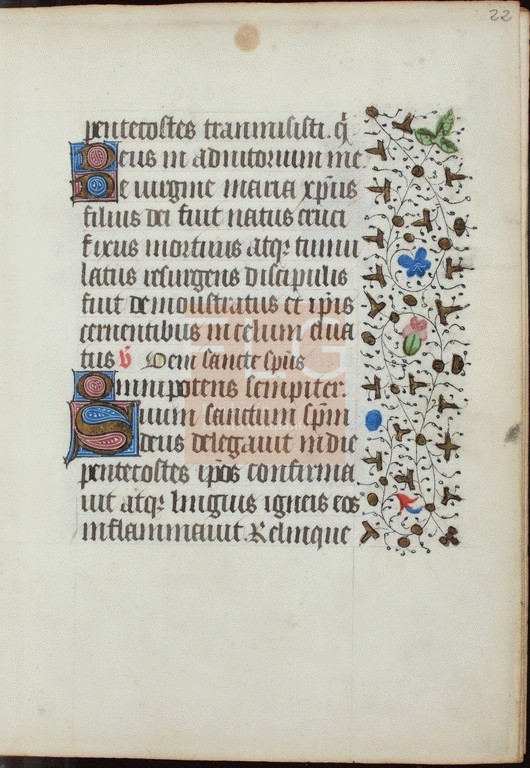 22
pentecostes tranmisisti. q̄
Deus in adiutorium me
De uirgine maria xp̄us
filius dei fuit natus cruci
fixus mortuus atqꝫ tumu
latus resurgens discipulis
fuit demonstratus et ip̄is
cernentibus in celum elua
tus ℣ Veni sancte sp̄us
Omnipotens sempiter.
Suum sanctum sp̄m
deus delegauit in die
pentecostes ip̄os confirma
uit atqꝫ linguis igneis eos
inflammauit. Relinque